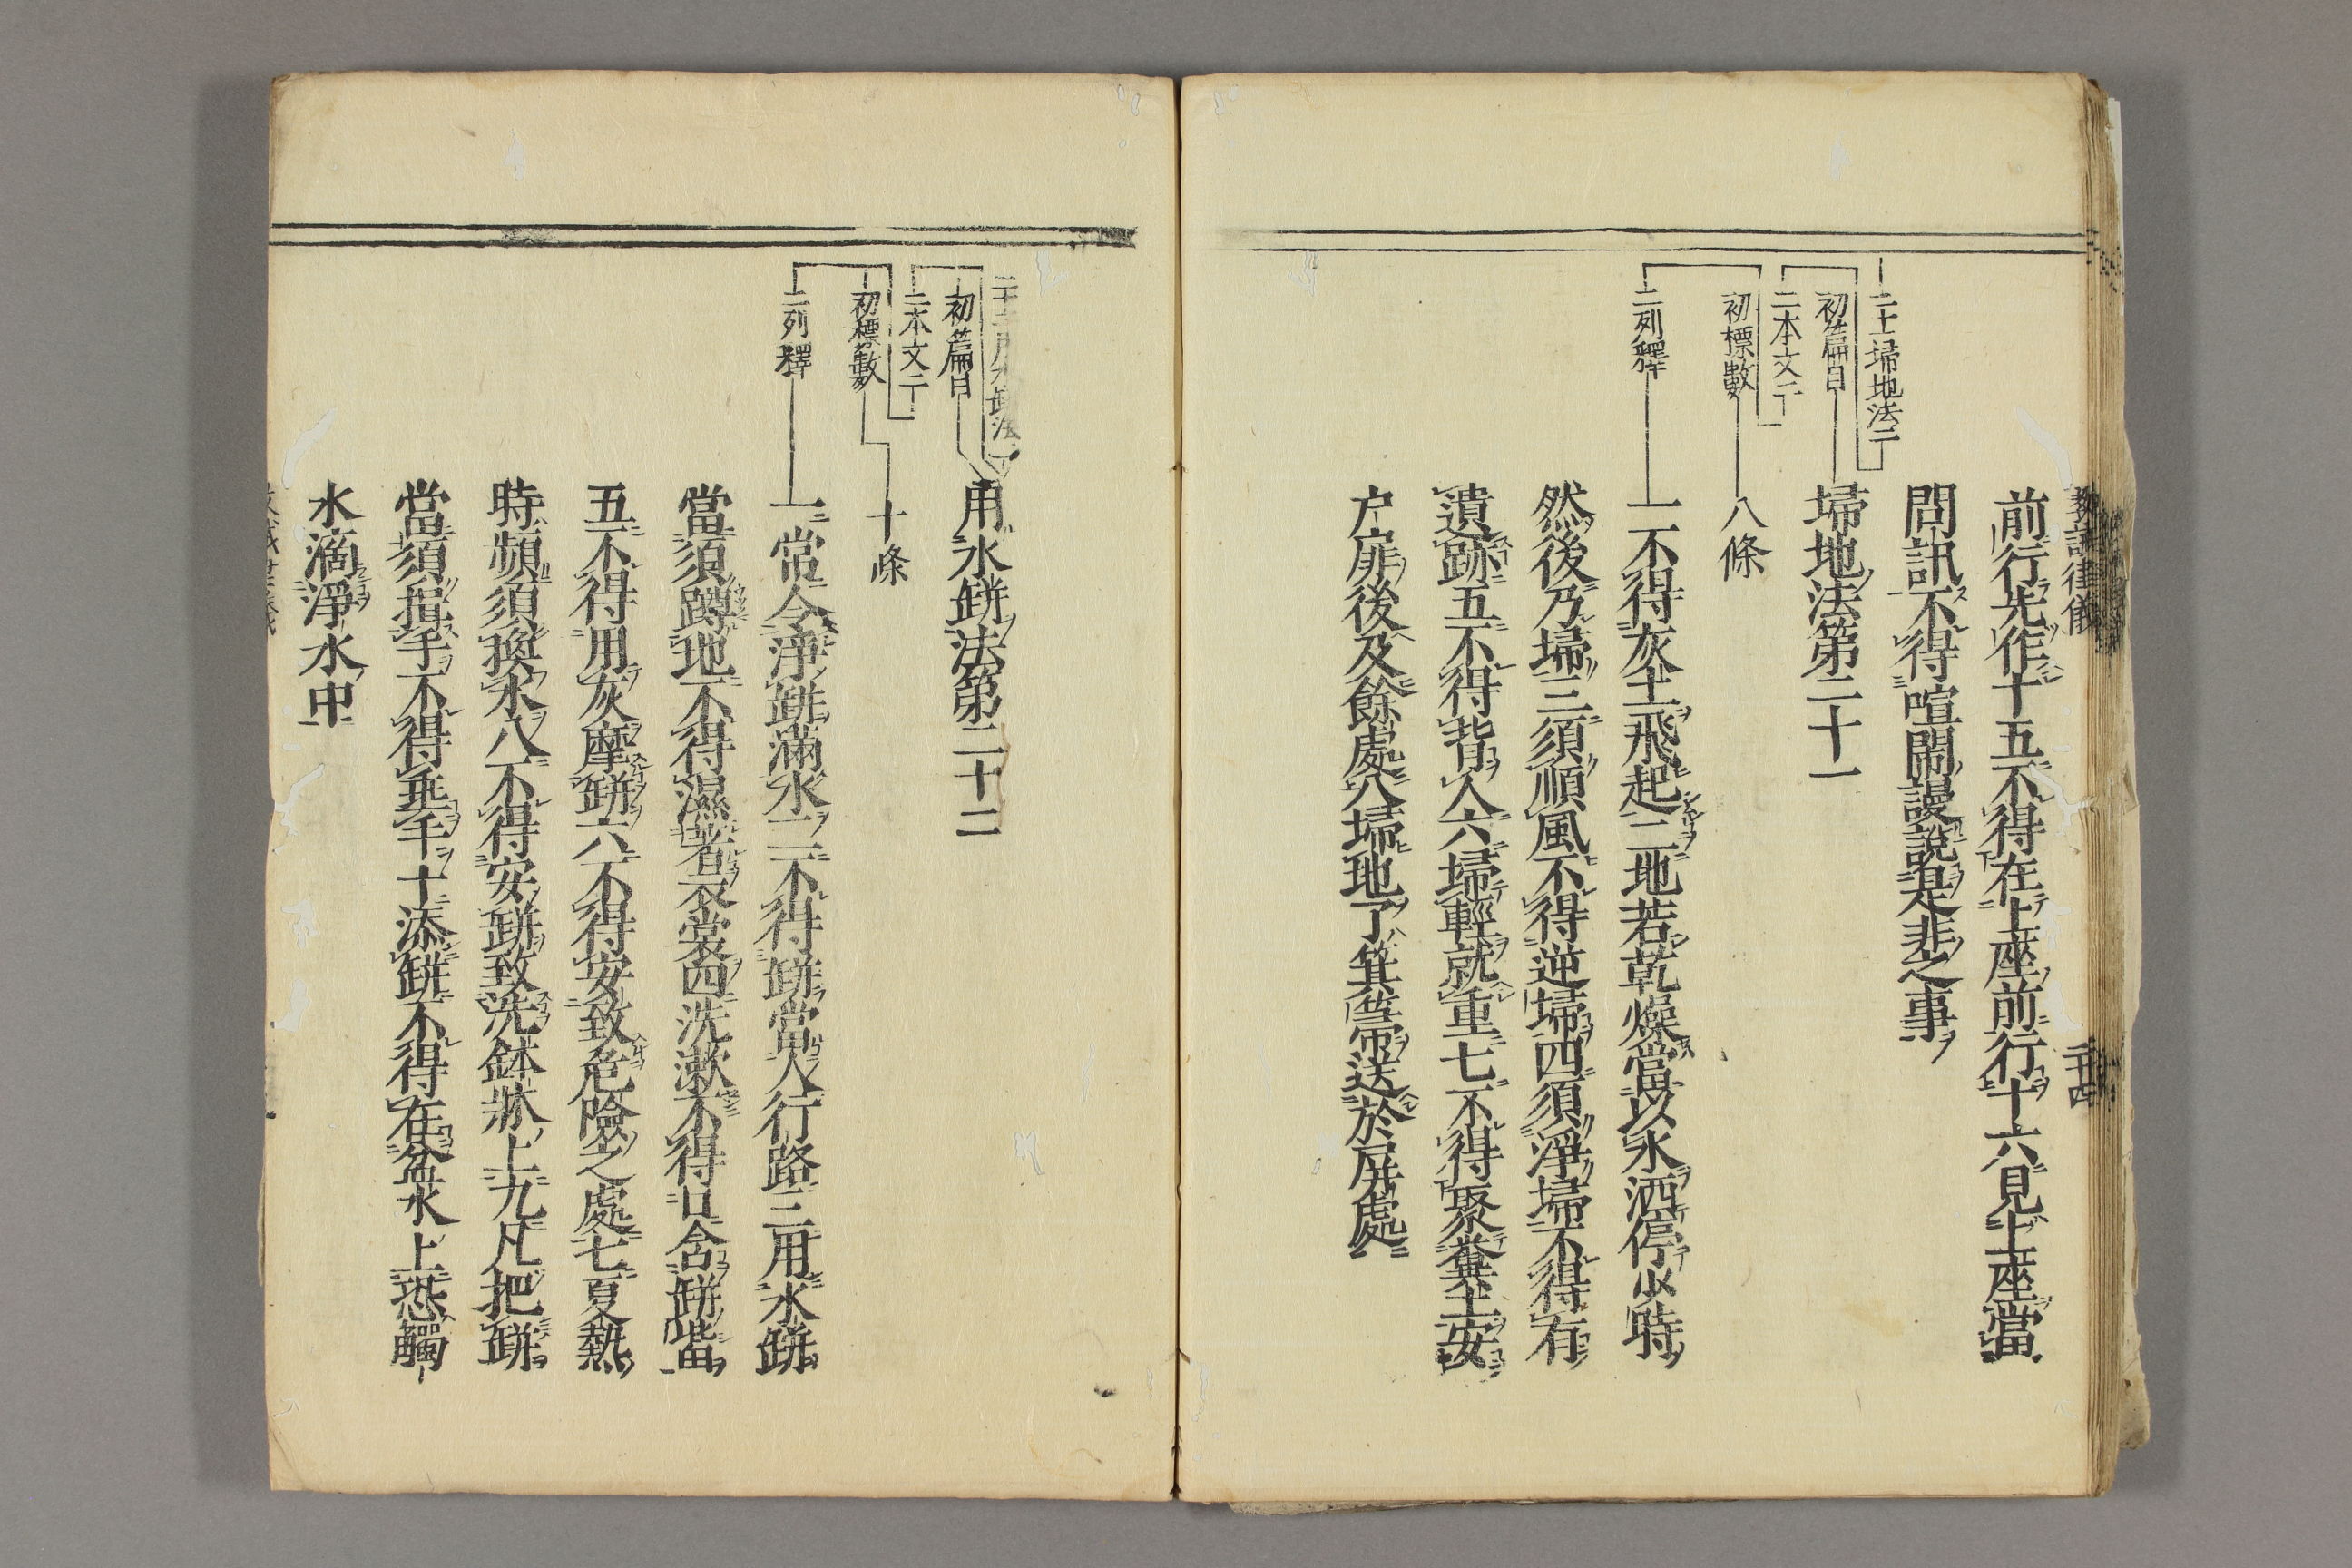 教誡律儀 二十四
前行先作十五不得在上座前行十六見上座當
問訊不得喧鬧謾說是非之事
二十掃地法二
初篇目
掃地法第二十一
二本文二
初標數
八條
二列釋
一不得灰土飛起二地若乾燥當以水洒停少時
然後乃掃三須順風不得逆掃四須淨掃不得有
遺跡五不得背人六掃輕就重七不得聚糞土安
户扉後及餘處八掃地了箕箒送於屏處
初篇目
用水缾法第二十二
二本文二
初標數
十條
二列釋
一常令淨缾滿水二不得缾當人行路三用水缾
當須蹲地不得濕著衣裳四洗漱不得口含缾觜
五不得用灰摩缾六不得安致危險之處七夏熱
時頻須換水八不得安缾致洗鉢牀上九凡把缾
當須揖手不得垂手十添缾不得在盆水上恐觸
水滴淨水中